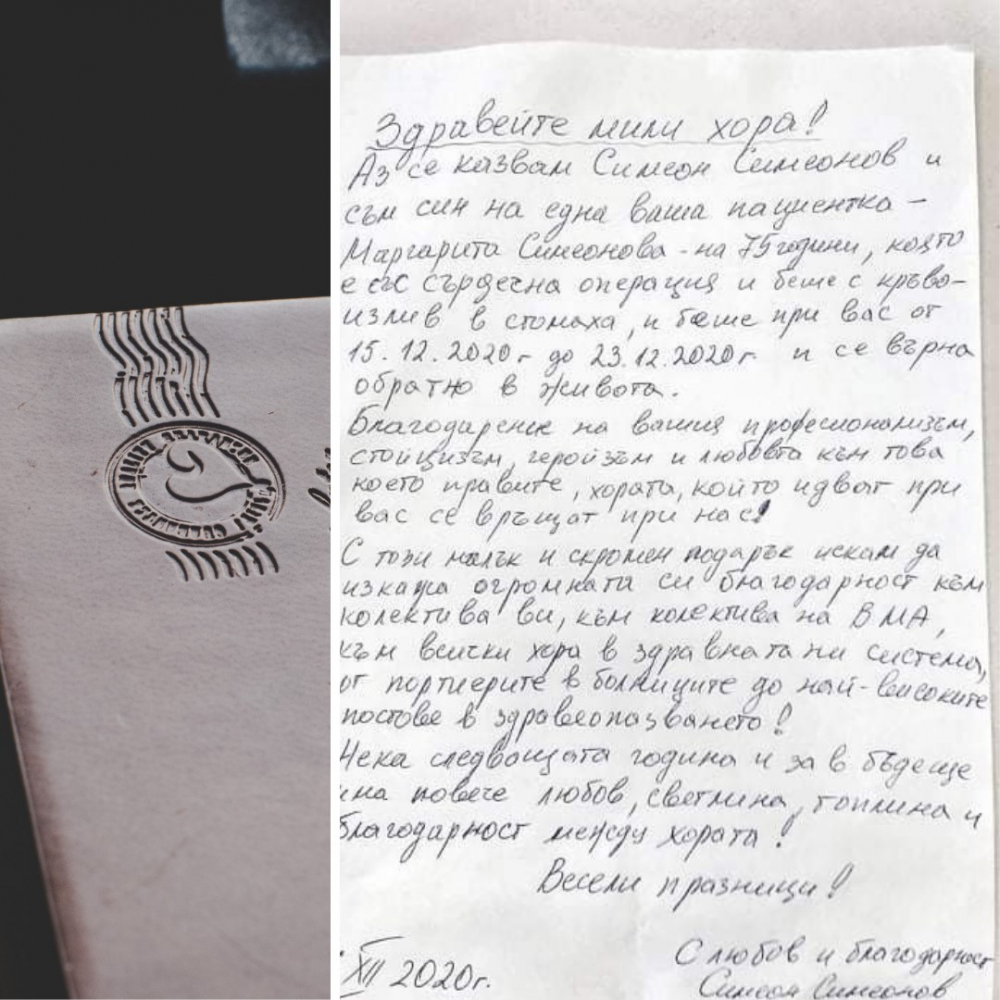 Здравейте мили хора!
Аз се казвам Симеон Симеонов и
съм син на една ваша пациентка –
Маргарита Симеонова - на 75 години, която
е със сърдечна операция и беше с кръво-
излив в стомаха, и беше при вас от
15.12.2020г до 23.12.2020г. и се върна
обратно в живота.
Благодарение на вашия професионализъм,
стоицизъм, героизъм и любовта към това
което правите, хората, които идват при
вас се връщат при нас!
С този малък и скромен подарък искам да
изкажа огромната си благодарност към
колектива ви, към колектива на ВМА,
към всички хора в здравната ни система,
от портиерите в болниците до най-високите
постове в здравеопазването!
Нека следващата година и за в бъдеще
има повече любов, светлина, топлина и
благодарност между хората!
Весели празници!
XII 2020г.
С любов и благодарност
Симеон Симеонов